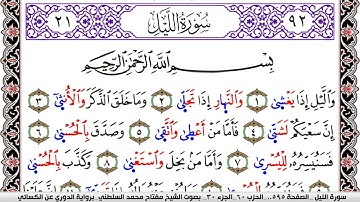 ٩٢ سُورَةُ اللَّيْلِ ٢١
بِسْمِ اللَّهِ الرَّحْمَٰنِ الرَّحِيمِ
وَالَّيْلِ إِذَا يَغْشَىٰ ١ وَالنَّهَارِ إِذَا تَجَلَّىٰ ٢ وَمَا خَلَقَ الذَّكَرَ وَالْأُنثَىٰ ٣
إِنَّ سَعْيَكُمْ لَشَتَّىٰ ٤ فَأَمَّا مَنْ أَعْطَىٰ وَاتَّقَىٰ ٥ وَصَدَّقَ بِالْحُسْنَىٰ ٦
فَسَنُيَسِّرُهُ لِلْيُسْرَىٰ ٧ وَأَمَّا مَنْ بَخِلَ وَاسْتَغْنَىٰ ٨ وَكَذَّبَ بِالْحُسْنَىٰ
سورة الليل _ الصفحة ٥٩٥ _ الحزب ٦٠ _ الجزء ٣٠ _ بصوت الشيخ مفتاح محمد السلطني _ برواية الدوري عن الكسائي